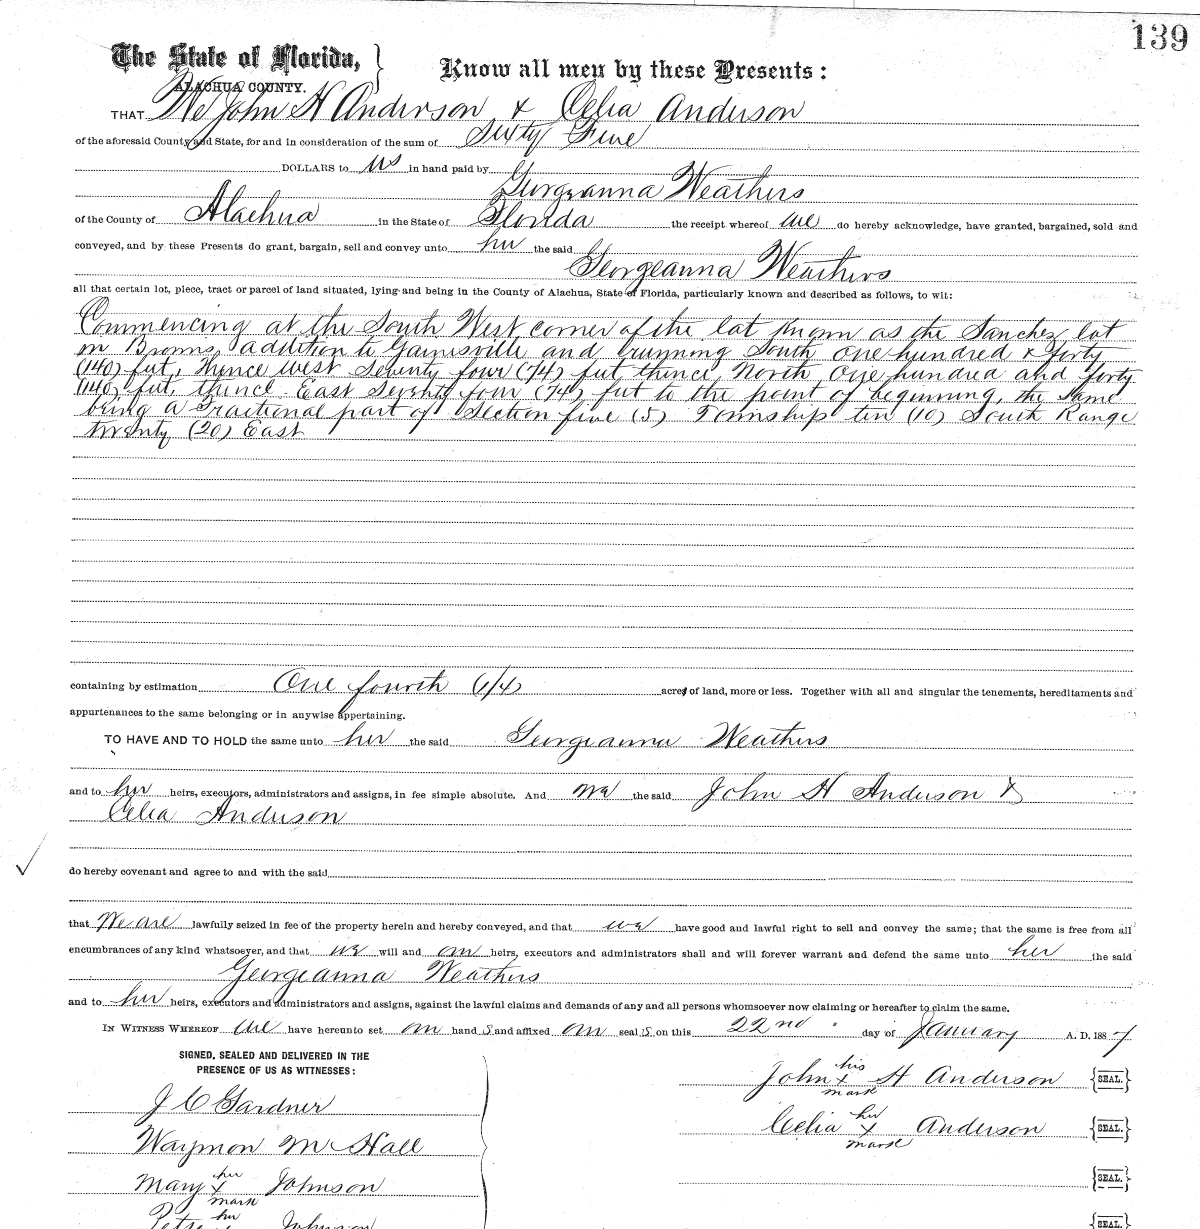 139
The State of Florida, }
Know all men by these Presents:
ALACHUA COUNTY.
THAT We John H Anderson & Celia Anderson
of the aforesaid County and State, for and in consideration of the sum of Sixty Five
DOLLARS to us in hand paid by
Georgeanna Weathers
of the County of Alachua in the State of Florida the receipt whereof we do hereby acknowledge, have granted, bargained, sold and
conveyed, and by these Presents do grant, bargain, sell and convey unto her the said
Georgeanna Weathers
all that certain lot, piece, tract or parcel of land situated, lying and being in the County of Alachua, State of Florida, particularly known and described as follows, to wit:
Commencing at the South West corner of the lot known as the Sanchez lot
in Browns addition to Gainesville and running South one hundred & forty
(140) feet, thence west Seventy four (74) feet thence North one hundred and forty
(140) feet, thence East Seventy four (74) feet to the point of beginning, the same
being a Fractional part of Section five (5) Township ten (10) South Range
twenty (20) East
containing by estimation One fourth (1/4) acre of land, more or less. Together with all and singular the tenements, hereditaments and
appurtenances to the same belonging or in anywise appertaining.
TO HAVE AND TO HOLD the same unto her the said Georgeanna Weathers
and to her heirs, executors, administrators and assigns, in fee simple absolute. And we the said John H Anderson &
Celia Anderson
do hereby covenant and agree to and with the said
that We are lawfully seized in fee of the property herein and hereby conveyed, and that we have good and lawful right to sell and convey the same; that the same is free from all
encumbrances of any kind whatsoever, and that we will and our heirs, executors and administrators shall and will forever warrant and defend the same unto her the said
Georgeanna Weathers
and to her heirs, executors and administrators and assigns, against the lawful claims and demands of any and all persons whomsoever now claiming or hereafter to claim the same.
IN WITNESS WHEREOF we have hereunto set our hand s and affixed our seal s on this 22nd day of January A. D. 1887
SIGNED, SEALED AND DELIVERED IN THE
PRESENCE OF US AS WITNESSES:
John his x mark H Anderson {SEAL.}
J C Gardner
Celia her x mark Anderson {SEAL.}
Waymon McHall
Mary her x mark Johnson {SEAL.}
her Johnson {SEAL.}